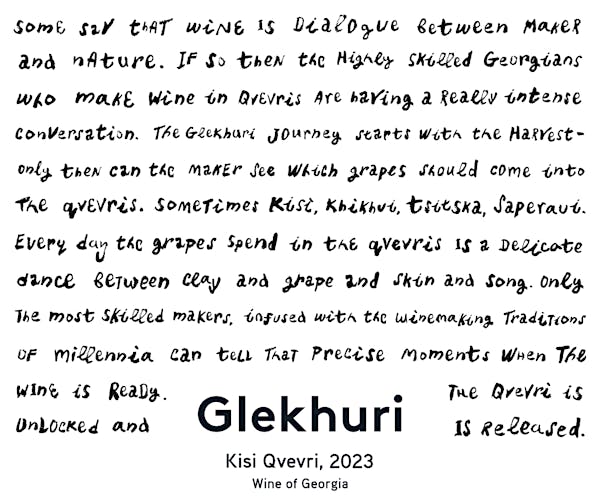 Some say that wine is dialogue between maker
and nature. If so then the highly skilled Georgians
who make wine in qvevris are having a really intense
conversation. The Glekhuri journey starts with the harvest-
only then can the maker see which grapes should come into
the qvevris. Sometimes Kisi, Khikhvi, Tsitska, Saperavi.
Every day the grapes spend in the qvevris is a delicate
dance between clay and grape and skin and song. Only
the most skilled makers, infused with the winemaking traditions
of millennia can tell that precise moments when the
wine is ready. The qvevri is
unlocked and is released.
Glekhuri
Kisi Qvevri, 2023
Wine of Georgia